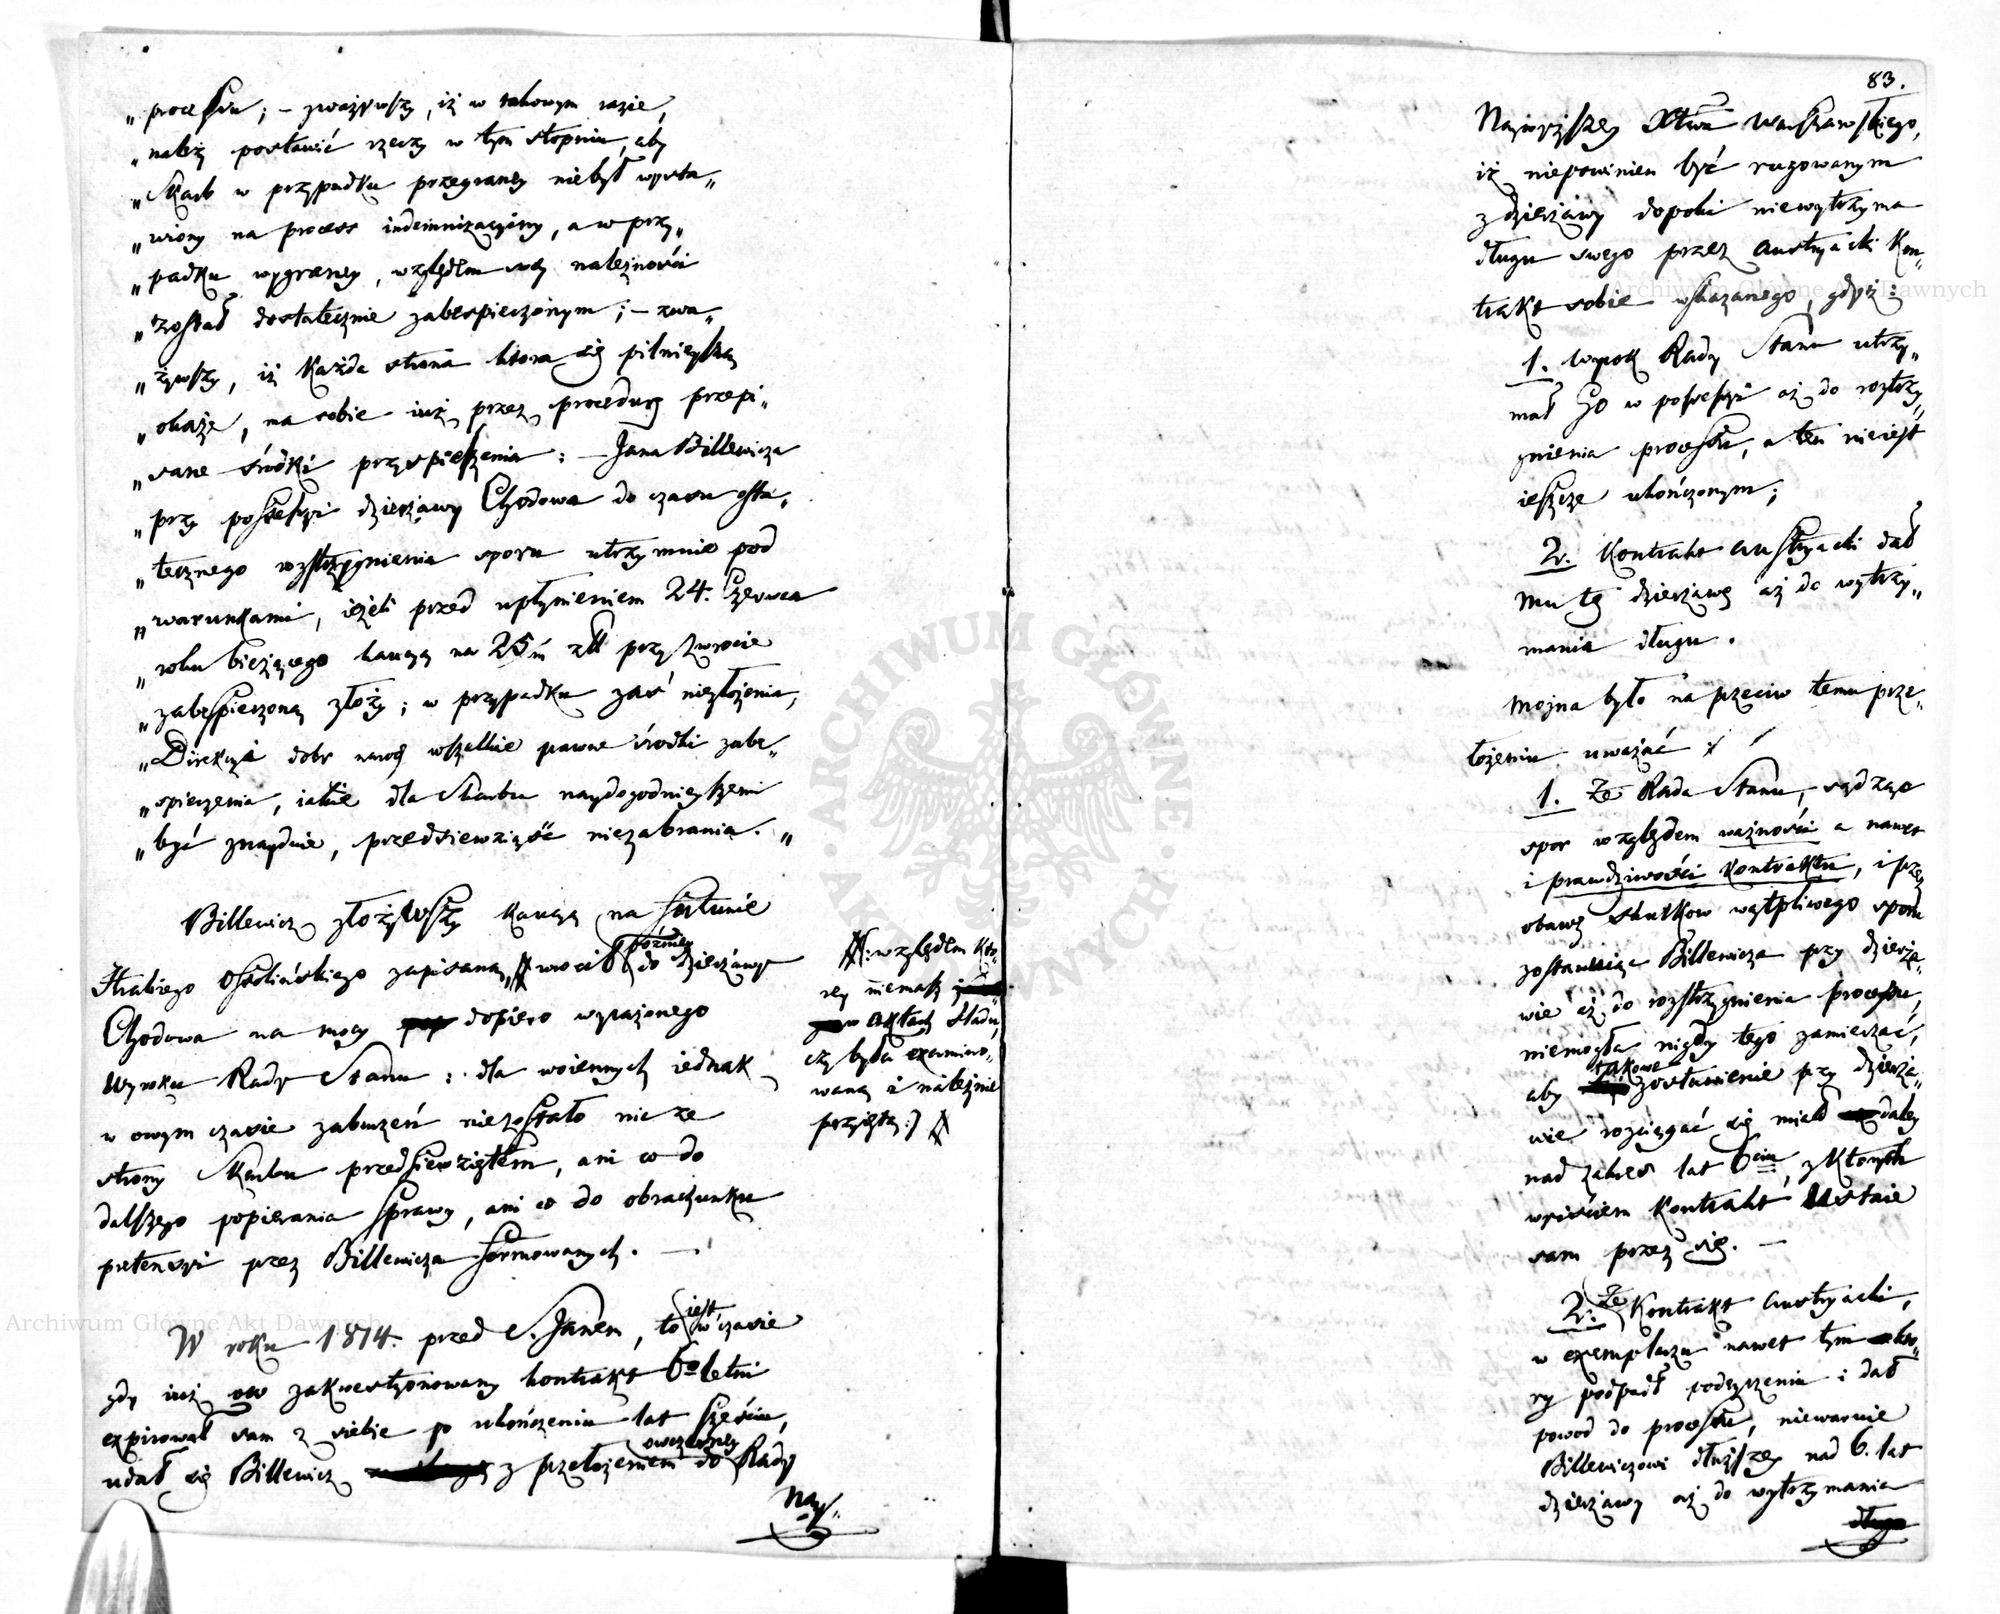 „processu; – zważywszy, iż w takowym razie,
„należy postawić rzeczy w tym stopniu, aby
„Skarb w przypadku przegraney niebył wysta„
„wiony na process indemnizacyiny, a w przy„
„padku wygraney, względem swey należności
„został dostatecznie zabespieczonym; – zwa„
„żywszy, iż Każda strona ktora się pilnieyszą
„okaże, ma sobie iuż przez procedurę przepi„
„sane śrzodki przyspieszenia: – Jana Billewicza
„przy possessyi dzierżawy Chodowa do czasu osta„
„tecznego rozstrzygnienia sporu utrzymuie pod
„warunkami, ieżeli przed upłynieniem 24. Czerwca
„roku bieżącego kaucyą na 25/m złł przyzwoicie
„zabespieczoną złoży; w przypadku zaś niezłożenia,
„Direkcyi dobr narod: wszelkie prawne środki zabe„
„spieczenia, iakie dla Skarbu naydogodnieyszemi
„być znaydzie, przedsiewziąść niezabrania. „
Billewicz złożywszy Kaucyą na fortunie
Hrabiego Ossolińskiego zapisaną, # wrocił poźniey do dzierżawy
Chodowa na mocy dopiero wyrażonego
Wyroku Rady Stanu: dla woiennych iednak
w owym czasie zaburzeń niezostało nic ze
strony Skarbu przedsiewziętem, ani co do
dalszego popierania sprawy, ani co do obrachunku
pretensyi przez Billewicza formowanych. –
#: względem kto„
rey niemasz
w Aktach śladu,
czy była examino„
waną i należnie
przyiętą:) #
W roku 1814. przed S. Janem, to iest w czasie
gdy iuż ow zakwestyonowany kontrakt 6o letni
expirował sam z siebie po ukończeniu lat sześciu,
udał się Billewicz z przełożeniem do owczesney Rady
Nay„
83.
Naywyższey Xtwa Warszawskiego,
iż niepowinien być rugowanym
z dzierżawy dopoki niewytrzyma
długu swego przez Austryacki Kon„
trakt sobie wskazanego, gdyż:
1. Wyrok Rady Stanu utrzy„
mał Go w possessyi aż do roztrzy„
gnienia processu, a ten nieiest
ieszcze ukończonym;
2. Kontrakt Austryacki dał
mu tę dzierżawę aż do wytrzy„
mania długu.
Można było na przeciw temu prze„
łożeniu uważać
1. Że Rada Stanu, sądząc
spor względem ważności a nawet
i prawdziwości Kontraktu, i przez
obawę skutkow wątpliwego sporu
zostawuiąc Billewicza przy dzierża„
wie aż do rozstrzygnienia processu,
niemogła nigdy tego zamierzać,
aby takowe zostawienie przy dzierża„
wie rozciągać się miało daley
nad zakres lat 6ciu, z Ktorych
wyiściem Kontrakt Ustaie
sam przez się. –
2. Że Kontrakt Austryacki,
w exemplarzu nawet tym kto„
ry podpadł podeyrzeniu i dał
powod do processu, niewaruie
Billewiczowi dłuższey nad 6. lat
dzierżawy aż do wytrzymania
długu